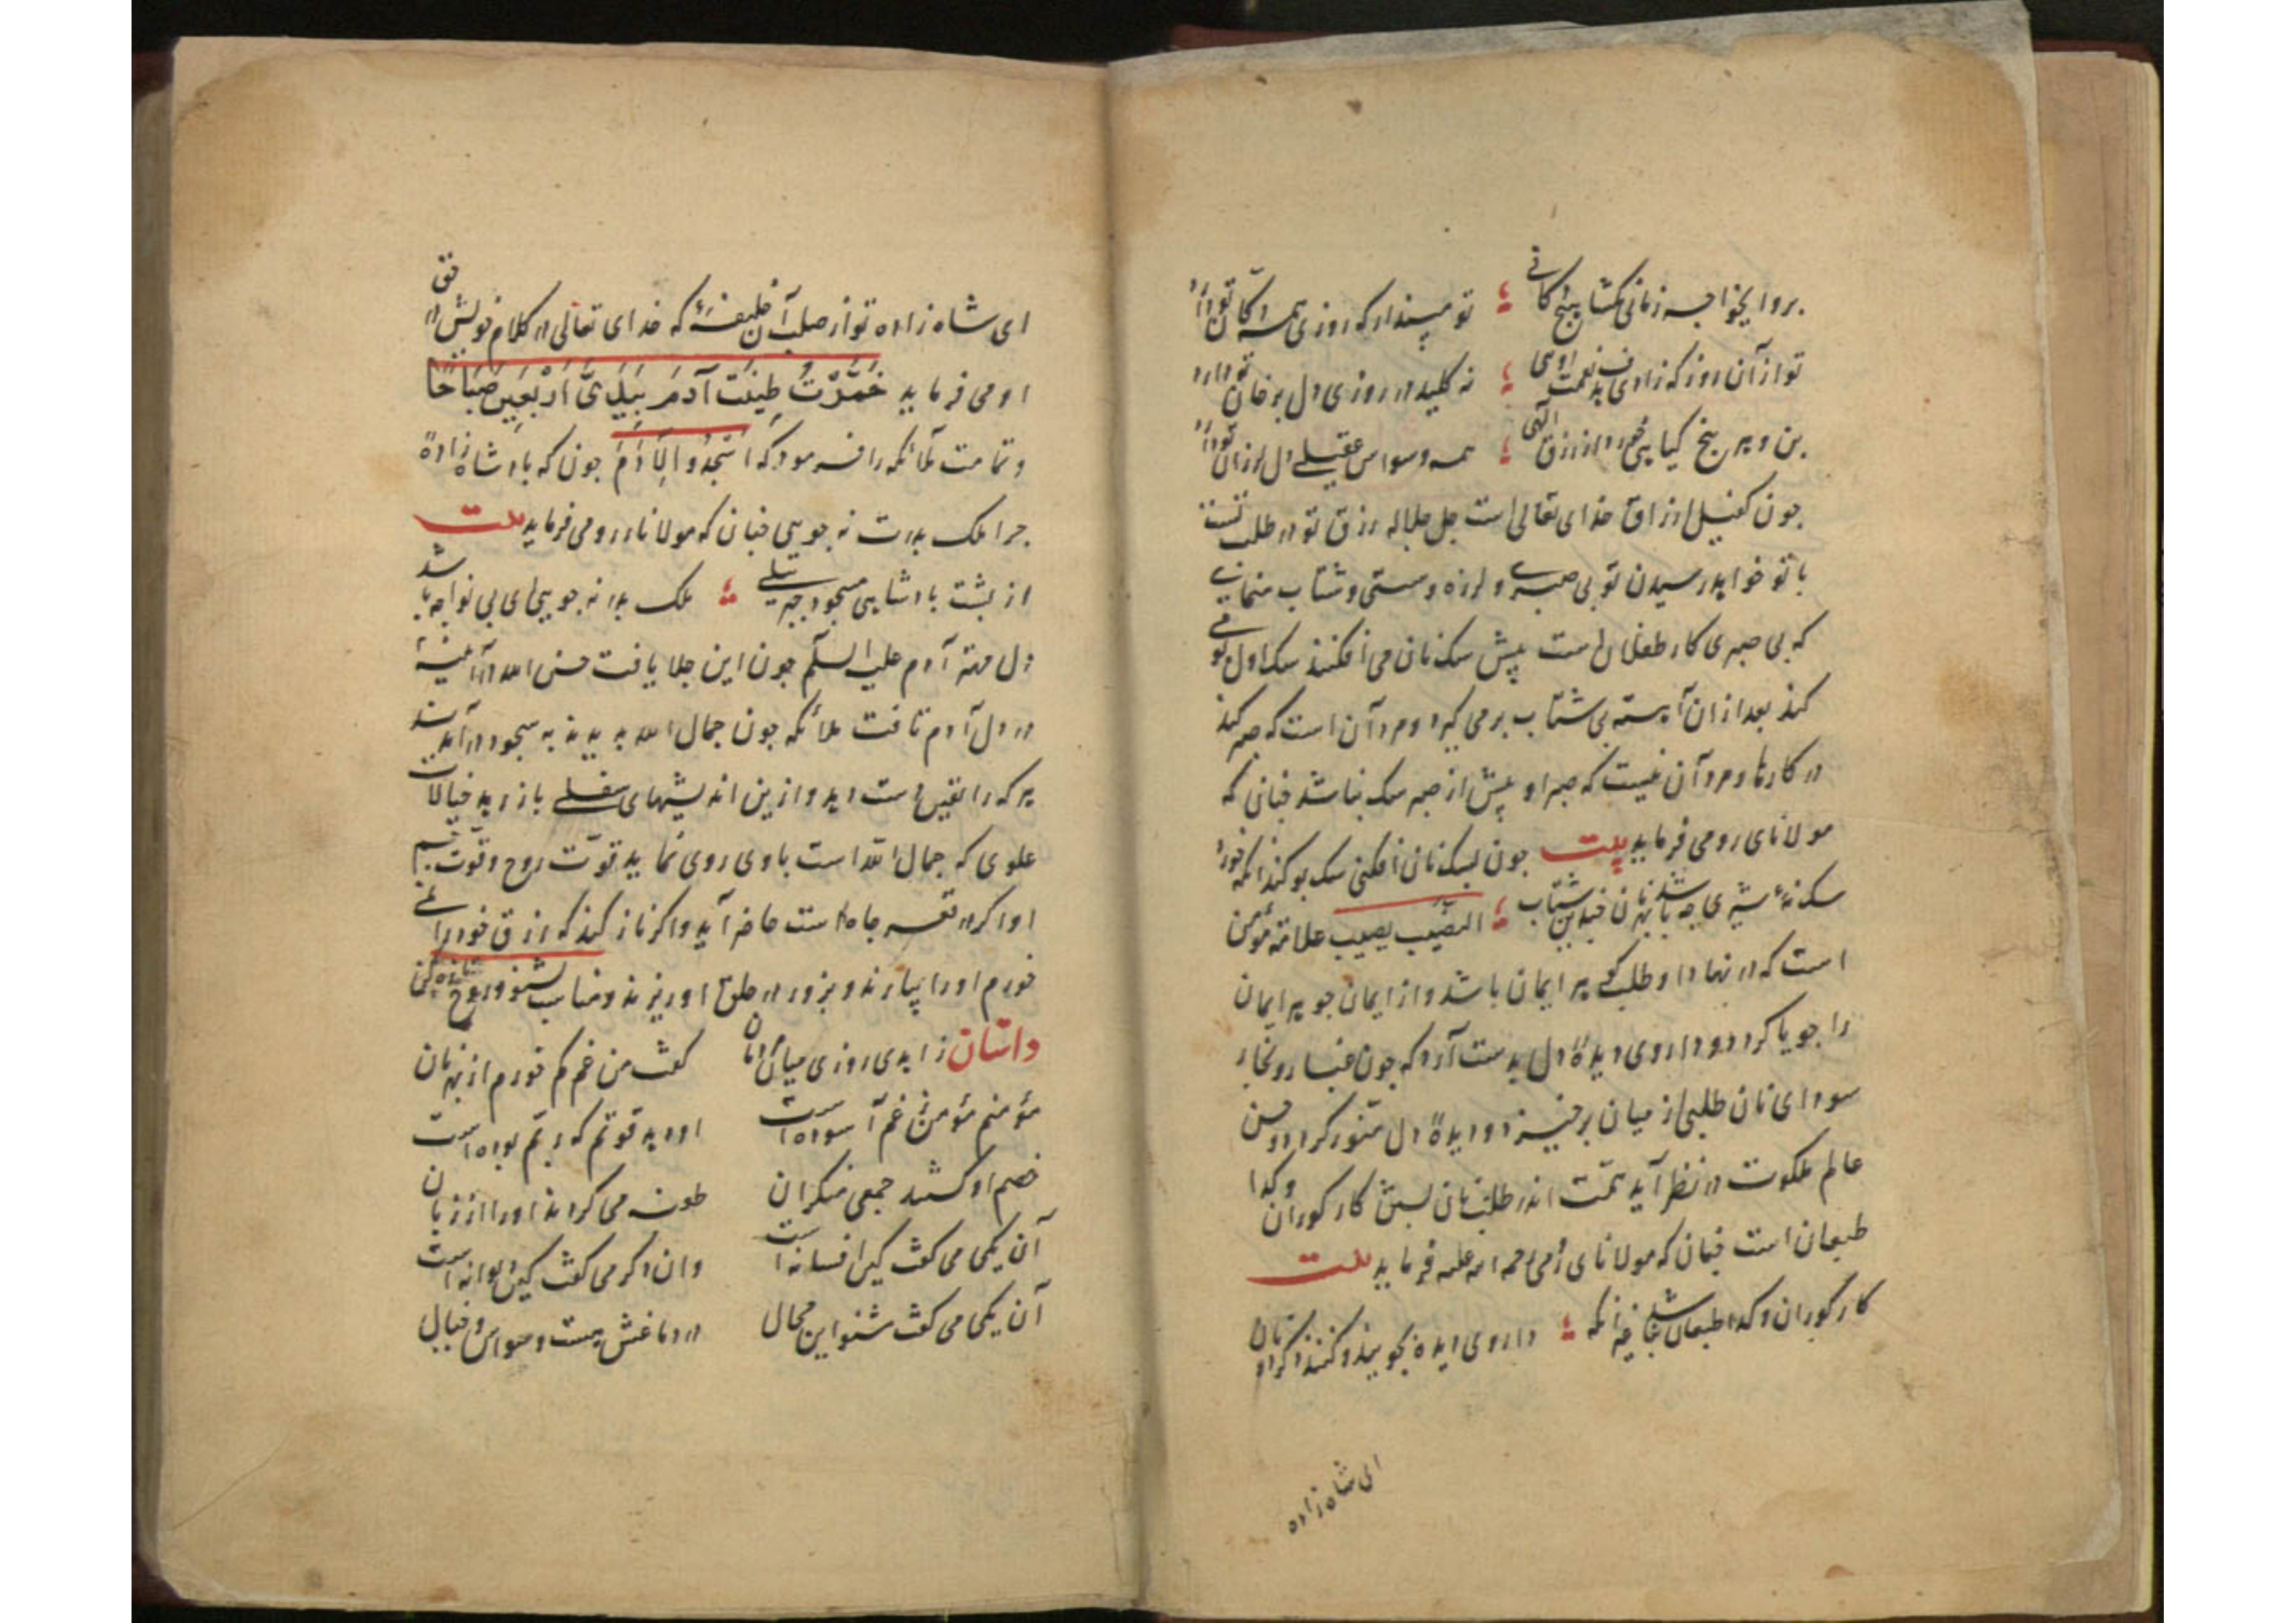 برو ای خواجه زمانی مکشا هیچ دکانی ؛ تو مپندار که روزی همه دکان تو دارد
تو از آن روز که زادی هدف نعمت اویی ؛ نه کلید در روزی دل برخان تو دارد
بن و بیخ هر گیاهی خورد از رزق الهی ؛ همه وسواس عقیلی دل لرزان تو دارد
جون کفیل ارزاق خدای تعالی است جل جلاله رزق تو در طلب تست
با تو خواهد رسیدن تو بی صبری و لرزه و سستی و شتاب منمای
که بی صبری کار طفلان است پیش سک نان می افکنند سک اول بوی
کند بعد از ان آهسته بی شتاب بر می کیرد و مرد آن است که صبر کند
در کارها و مرد آن نیست که صبر او پیش از صبر سک نباشد جنانی که
مولانای رومی فرماید بیت جون بسک نان افکنی سک بو کند انکه خورد
سک نهٔ شیری جه باشد بهر نان جندین شتاب ؛ النصیب یصیب علامة مؤمن
است که در نهاد او طلب کوهر ایمان باشد و از ایمان جوهر ایمان
را جویا کردد و داروی دیدهٔ دل بدست آرد که جون غبار و بخار
سودای نان طلبی از میان برخیزد و دیدهٔ دل منور کردد و حسن
عالم ملکوت در نظر آید همت اندر طلب نان بستن کار کوران و کدا
طبعان است جنان که مولانای رومی رحمة الله علیه فرماید بیت
کار کوران و کدا طبعان باشد غیر انکه ؛ داروی دیده نجویند و کنند ذکر او نان
ای شاه زاده
ای شاه زاده تو از صلب آن خلیفهٔ که خدای تعالی در کلام خویش در حق
او می فرماید خَمَّرْتُ طِینَتَ آدَمَ بِیَدَیَّ اَرْبَعِینَ صَبَاحًا
و تمامت ملائکه را فرمود که اُسْجُدُوا لِآدَمَ جون که بادشاه زادهٔ
جرا ملک بدرت نه جویی جنان که مولانا رومی فرماید بیت
از بشت بادشاهی مسجود جبرئیلی ؛ ملک بدر نه جویی ای بی نوا جه باشد
دل مهتر آدم علیه السلم جون این جلا یافت حسن الله در آینهٔ
در دل آدم تافت ملائکه جون جمال الله بدیدند به سجود در آمدند
هر که را یقین است دید و از ین اندیشهای سفلی باز رهد خیالات
علوی که جمال الله است با وی روی نماید قوّت روح و قوّت جسم
او اکر در قعر جاه است حاضر آید و اکر ناز کند که رزق خود را نمی
خورم او را بیارند و بزور در حلق او ریزند و مناسب بشنو و روح تازه کن
داستان زاهدی روزی میان مردمان   کفت من غم کم خورم از بهر نان
مؤمنم مؤمن ز غم آسوده است   او دهد قوتم که دینم بوده است
خصم او کشتند جمعی منکران   طعنه می کردند او را از زبان
آن یکی می کفت کین افسانه است   وان دکر می کفت کین دیوانه است
آن یکی می کفت مشنو این محال   در دماغش هست وسواس و خیال